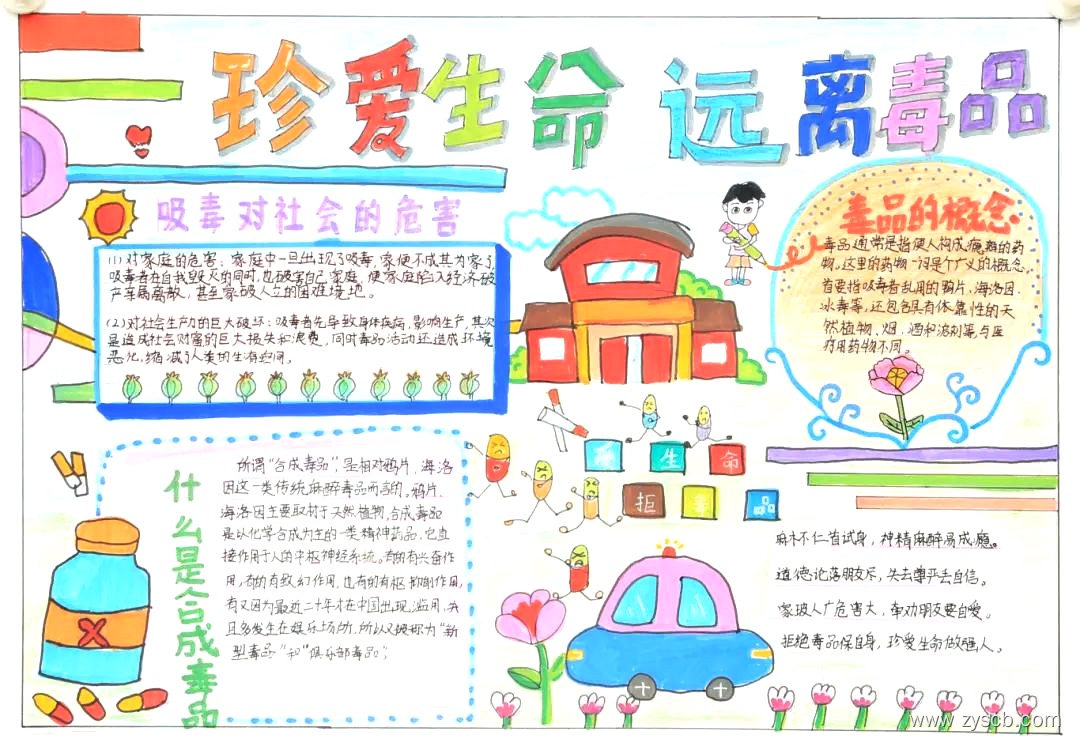 珍爱生命 远离毒品
吸毒对社会的危害
(1)对家庭的危害：家庭中一旦出现了吸毒,家便不成其为家了,
吸毒者在自我毁灭的同时,也破害自己家庭,使家庭陷入经济破
产车离离散,甚至家破人亡的困难境地。
(2)对社会生产力的巨大破坏：吸毒者先导致身体疾病,影响生产,其次
是造成社会财富的巨大损失和浪费,同时毒品活动还造成环境
恶化,缩减了人类的生存空间。
毒品的概念
毒品通常是指使人构成瘾癖的药
物。这里的药物一词是个广义的概念,
首要指吸毒者乱用的鸦片,海洛因,
冰毒等,还包含具有体靠性的天
然植物、烟、酒和溶剂等,与医
疗用药物不同。
生命
拒毒品
什么是合成毒品
所谓“合成毒品”,是相对鸦片,海洛
因这一类传统麻醉毒品而言的。鸦片、
海洛因主要取材于天然植物,合成毒品
是以化学合成为主的一类精神药品,它直
接作用于人的中枢神经系统。有的有兴奋作
用,有的有致幻作用,也有的有枢抑制作用,
有又因为最近二十年才在中国出现、滥用,并
且多发生在娱乐场所,所以又被称为“新
型毒品”和“俱乐部毒品”;
麻木不仁首试身,神精麻醉易成瘾。
道德论落朋友斥,失去尊严丢自信。
家破人亡危害大,奉劝朋友要自爱。
拒绝毒品保自身,珍爱生命做强人。
www.zyscb.com